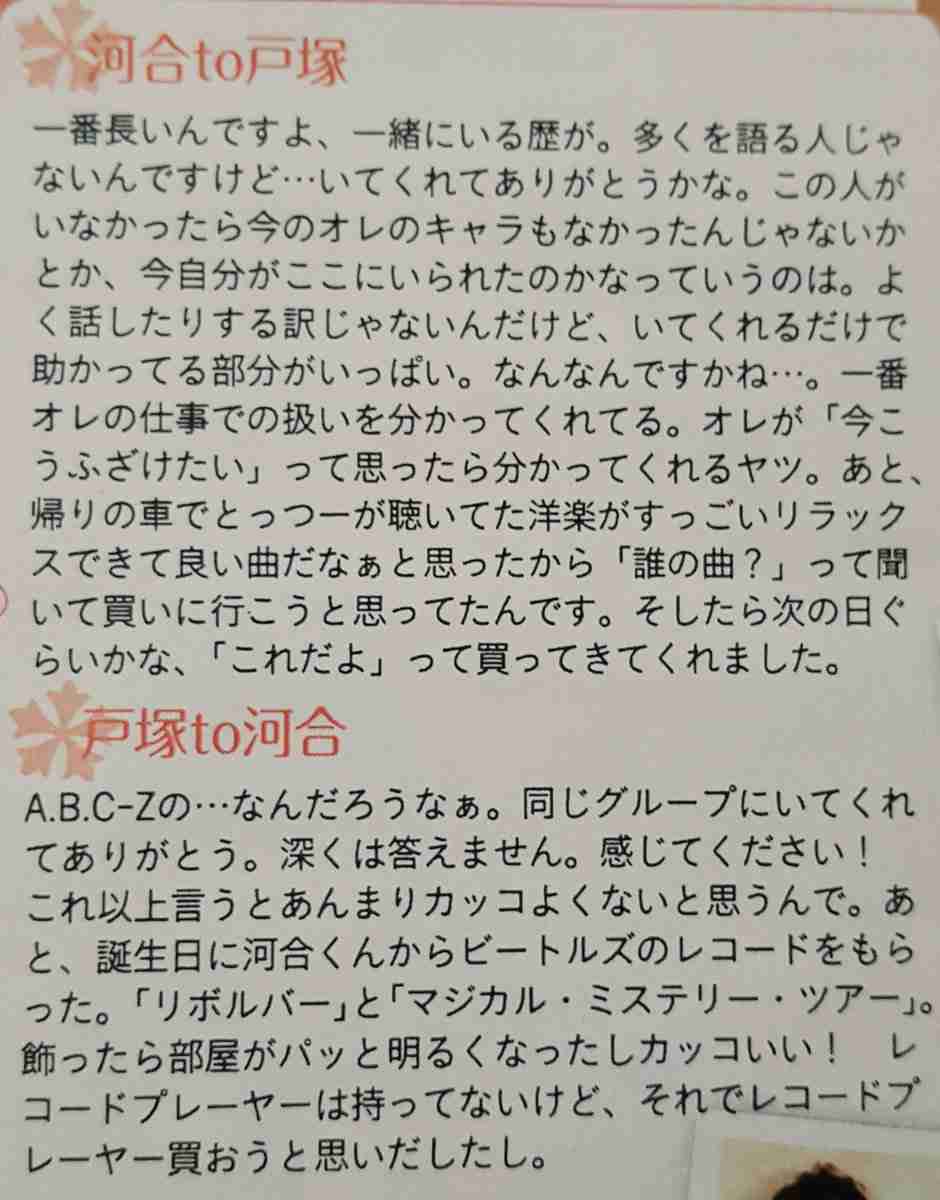 河合to戸塚
一番長いんですよ、一緒にいる歴が。多くを語る人じゃ
ないんですけど…いてくれてありがとうかな。この人が
いなかったら今のオレのキャラもなかったんじゃないか
とか、今自分がここにいられたのかなっていうのは。よ
く話したりする訳じゃないんだけど、いてくれるだけで
助かってる部分がいっぱい。なんなんですかね…。一番
オレの仕事での扱いを分かってくれてる。オレが「今こ
うふざけたい」って思ったら分かってくれるヤツ。あと、
帰りの車でとっつーが聴いてた洋楽がすっごいリラック
スできて良い曲だなぁと思ったから「誰の曲？」って聞
いて買いに行こうと思ってたんです。そしたら次の日ぐ
らいかな、「これだよ」って買ってきてくれました。
戸塚to河合
A.B.C-Zの…なんだろうなぁ。同じグループにいてくれ
てありがとう。深くは答えません。感じてください！
これ以上言うとあんまりカッコよくないと思うんで。あ
と、誕生日に河合くんからビートルズのレコードをもら
った。「リボルバー」と「マジカル・ミステリー・ツアー」。
飾ったら部屋がパッと明るくなったしカッコいい！　レ
コードプレーヤーは持ってないけど、それでレコードプ
レーヤー買おうと思いだしたし。